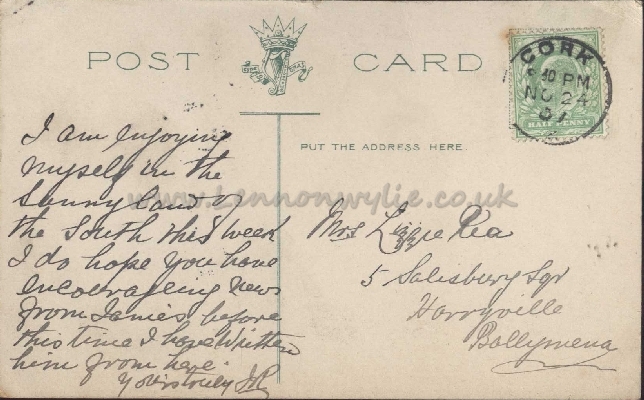 POST CARD
CORK
8 40 PM
NO 24
07
HALF PENNY
PUT THE ADDRESS HERE.
www.Lennonwylie.co.uk
I am enjoying
myself in the
Sunny land of
the South this week
I do hope you have
encourageing news
from James before
this time I have written
him from here.
Yours truly
Mrs Lizzie Rea
5 Salisbury Sqr
Harryville
Ballymena